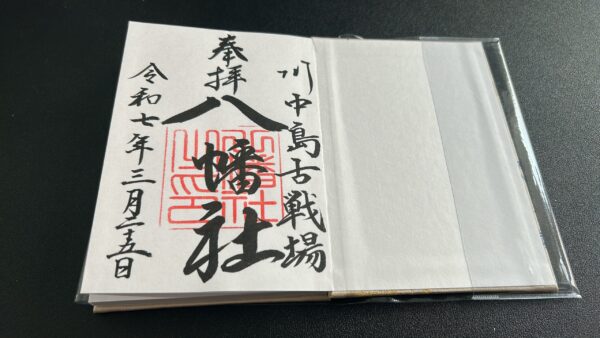 川中島古戦場
奉拝
八幡社
令和七年三月二十五日